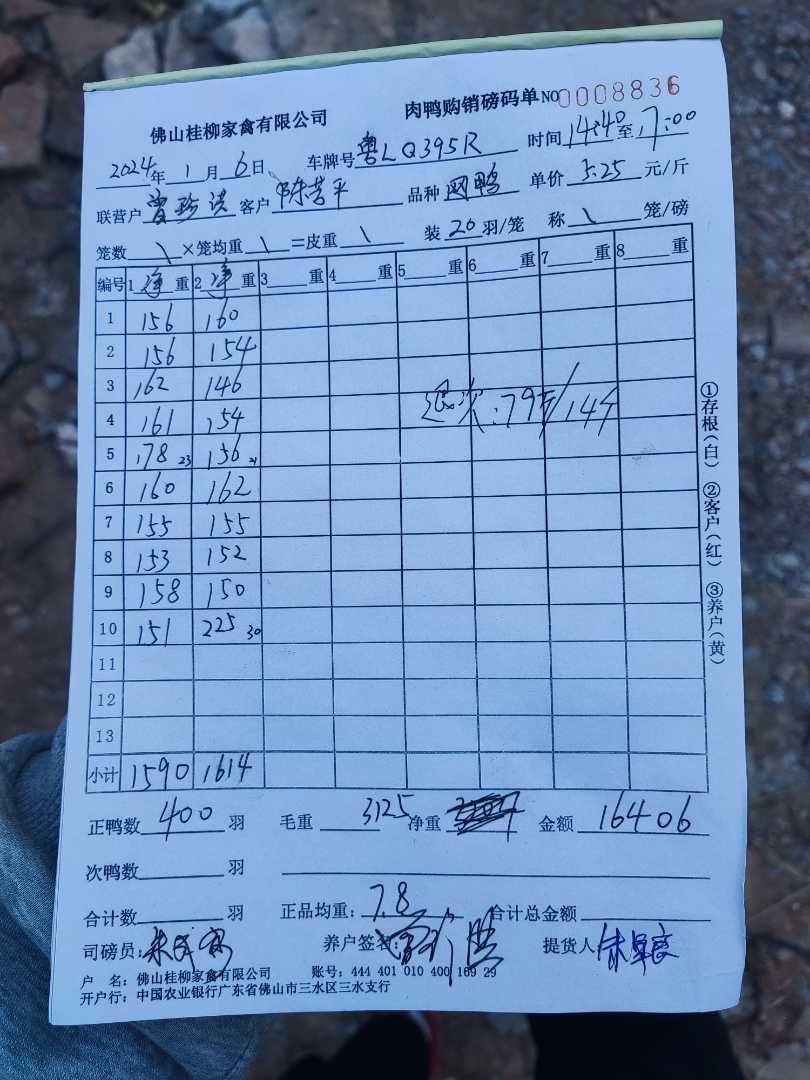 佛山桂柳家禽有限公司 肉鸭购销磅码单 NO 0008836
2024年 1 月 6 日 车牌号 粤LQ395R 时间 14:40 至 17:00
联营户 曾珍洪 客户 陈苦平 品种 网鸭 单价 5.25 元/斤
笼数 \ ×笼均重 \ =皮重 \ 装 20 羽/笼 称 \ 笼/磅
编号 1 净 重 2 净 重 3 重 4 重 5 重 6 重 7 重 8 重
1 156 160
2 156 154
3 162 146
4 161 154 退次:79斤/14只
5 178 23 156 21
6 160 162
7 155 155
8 153 152
9 158 150
10 151 225 30
11
12
13
小计 1590 1614
正鸭数 400 羽 毛重 3125 净重 金额 16406
次鸭数 羽
合计数 羽 正品均重: 7.8 合计总金额
司磅员: 养户签名: 提货人
户 名: 佛山桂柳家禽有限公司 账号: 444 401 010 400 169 29
开户行: 中国农业银行广东省佛山市三水区三水支行
①存根(白) ②客户(红) ③养户(黄)